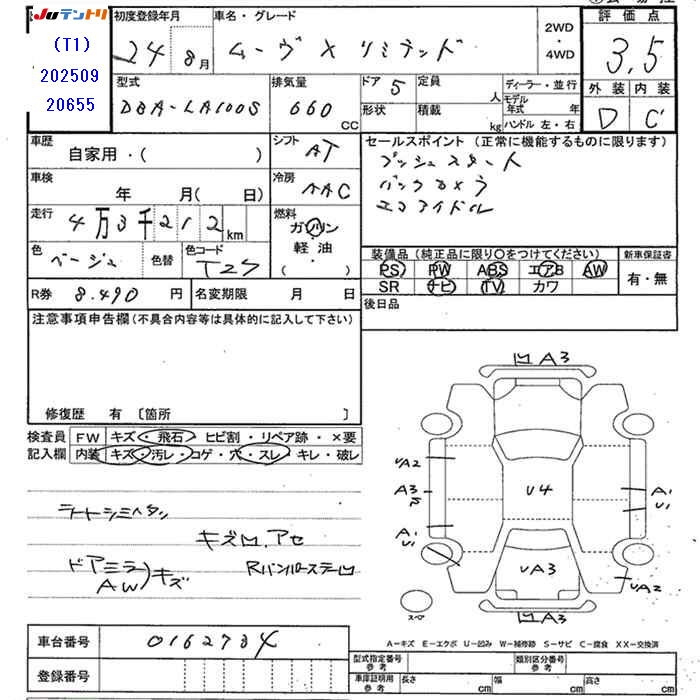 JUテントリ 初度登録年月 車名・グレード 評価点
(T1) 24 8月 ムーヴ X リミテッド 2WD・4WD 3.5
202509
20655 型式 DBA-LA100S 排気量 660 CC ドア 5 定員 人 ディーラー・並行 外装 内装
形状 積載 kg モデル年式 年 ハンドル 左・右 D C
車歴 自家用・( ) シフト AT セールスポイント (正常に機能するものに限ります)
プッシュスタート
車検 年 月( 日) 冷房 AAC バックカメラ
エコアイドル
走行 4万3千212km 燃料 ガソリン・軽油・( )
色 ベージュ 色替 色コード T27 装備品 (純正品に限り〇をつけてください) 新車保証書
PS PW ABS エアB AW 有・無
SR ナビ TV カワ
R券 8.490 円 名変期限 月 日 後日品
注意事項申告欄(不具合内容等は具体的に記入して下さい)
修復歴 有 〔箇所 〕
検査員 FW キズ・飛石・ヒビ割・リペア跡・×要
記入欄 内装 キズ・汚レ・コゲ・穴・スレ・キレ・破レ
ライトシミヘタン
キズ凹.アセ
ドアミラ)キズ Rバンパーステー凹
AW
凹A3
UA2
A3
A1
U1
U4
A1
U1
UA3
UA2
凹A3
スペア
A-キズ E-エクボ U-凹み W-補修跡 S-サビ C-腐食 XX-交換済
車台番号 0162734
登録番号
型式指定番号 参考 類別区分番号 参考
車庫証明用 参考 長さ cm 幅 cm 高さ cm